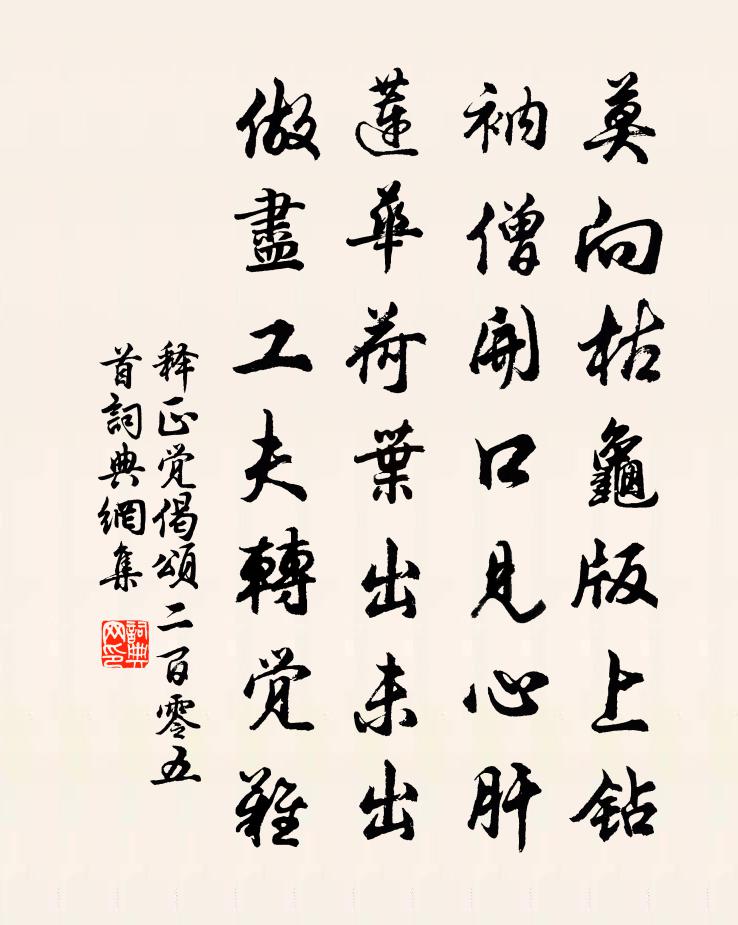 莫向枯龜版上鉆
衲僧開口見心肝
蓮華荷葉出未出
做盡工夫轉覺難
释正觉偈頌二百零五
首詞典網集
詞典
网印